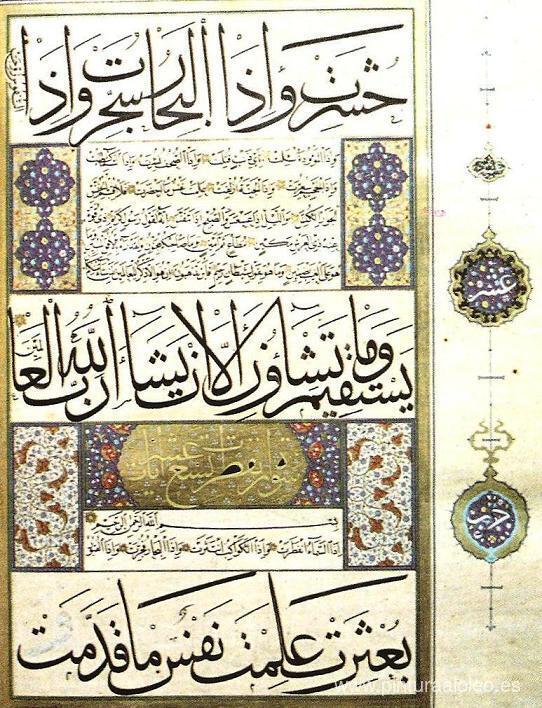 حُشِرَتْ وَإِذَا الْبِحَارُ سُجِّرَتْ وَإِذَا
النفوس زوجت
وَإِذَا الْمَوْؤُدَةُ سُئِلَتْ بِأَيِّ ذَنْبٍ قُتِلَتْ وَإِذَا الصُّحُفُ نُشِرَتْ وَإِذَا السَّمَاءُ كُشِطَتْ
وَإِذَا الْجَحِيمُ سُعِّرَتْ وَإِذَا الْجَنَّةُ أُزْلِفَتْ عَلِمَتْ نَفْسٌ مَا أَحْضَرَتْ فَلَا أُقْسِمُ بِالْخُنَّسِ
الْجَوَارِ الْكُنَّسِ وَاللَّيْلِ إِذَا عَسْعَسَ وَالصُّبْحِ إِذَا تَنَفَّسَ إِنَّهُ لَقَوْلُ رَسُولٍ كَرِيمٍ ذِي قُوَّةٍ
عِنْدَ ذِي الْعَرْشِ مَكِينٍ مُطَاعٍ ثَمَّ أَمِينٍ وَمَا صَاحِبُكُمْ بِمَجْنُونٍ وَلَقَدْ رَآهُ بِالْأُفُقِ الْمُبِينِ وَمَا
هُوَ عَلَى الْغَيْبِ بِضَنِينٍ وَمَا هُوَ بِقَوْلِ شَيْطَانٍ رَجِيمٍ فَأَيْنَ تَذْهَبُونَ إِنْ هُوَ إِلَّا ذِكْرٌ لِلْعَالَمِينَ لِمَنْ شَاءَ مِنْكُمْ أَنْ
يَسْتَقِيمَ وَمَا تَشَاؤُنَ إِلَّا أَنْ يَشَاءَ اللَّهُ رَبُّ الْعَالَمِينَ
عشر
سورة انفطرت تسع عشر آيات
بِسْمِ اللَّهِ الرَّحْمَنِ الرَّحِيمِ
إِذَا السَّمَاءُ انْفَطَرَتْ وَإِذَا الْكَوَاكِبُ انْتَثَرَتْ وَإِذَا الْبِحَارُ فُجِّرَتْ وَإِذَا الْقُبُورُ
حزب
بُعْثِرَتْ عَلِمَتْ نَفْسٌ مَا قَدَّمَتْ
www.pinturaaloleo.es